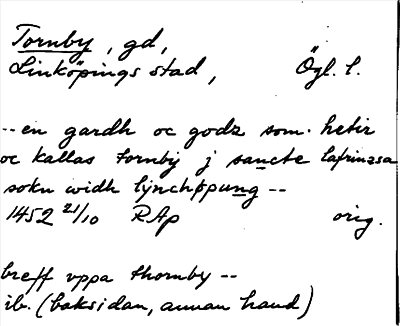 Tornby, gd,
Linköpings stad, Ögl. l.
--en gardh oc godz som hetir
oc kallas tornby j sancte lafrinzsa
sokn widh lynchøpung --
1452 21/10 RAp orig.
breff vppa thornby --
ib. (baksidan, annan hand)